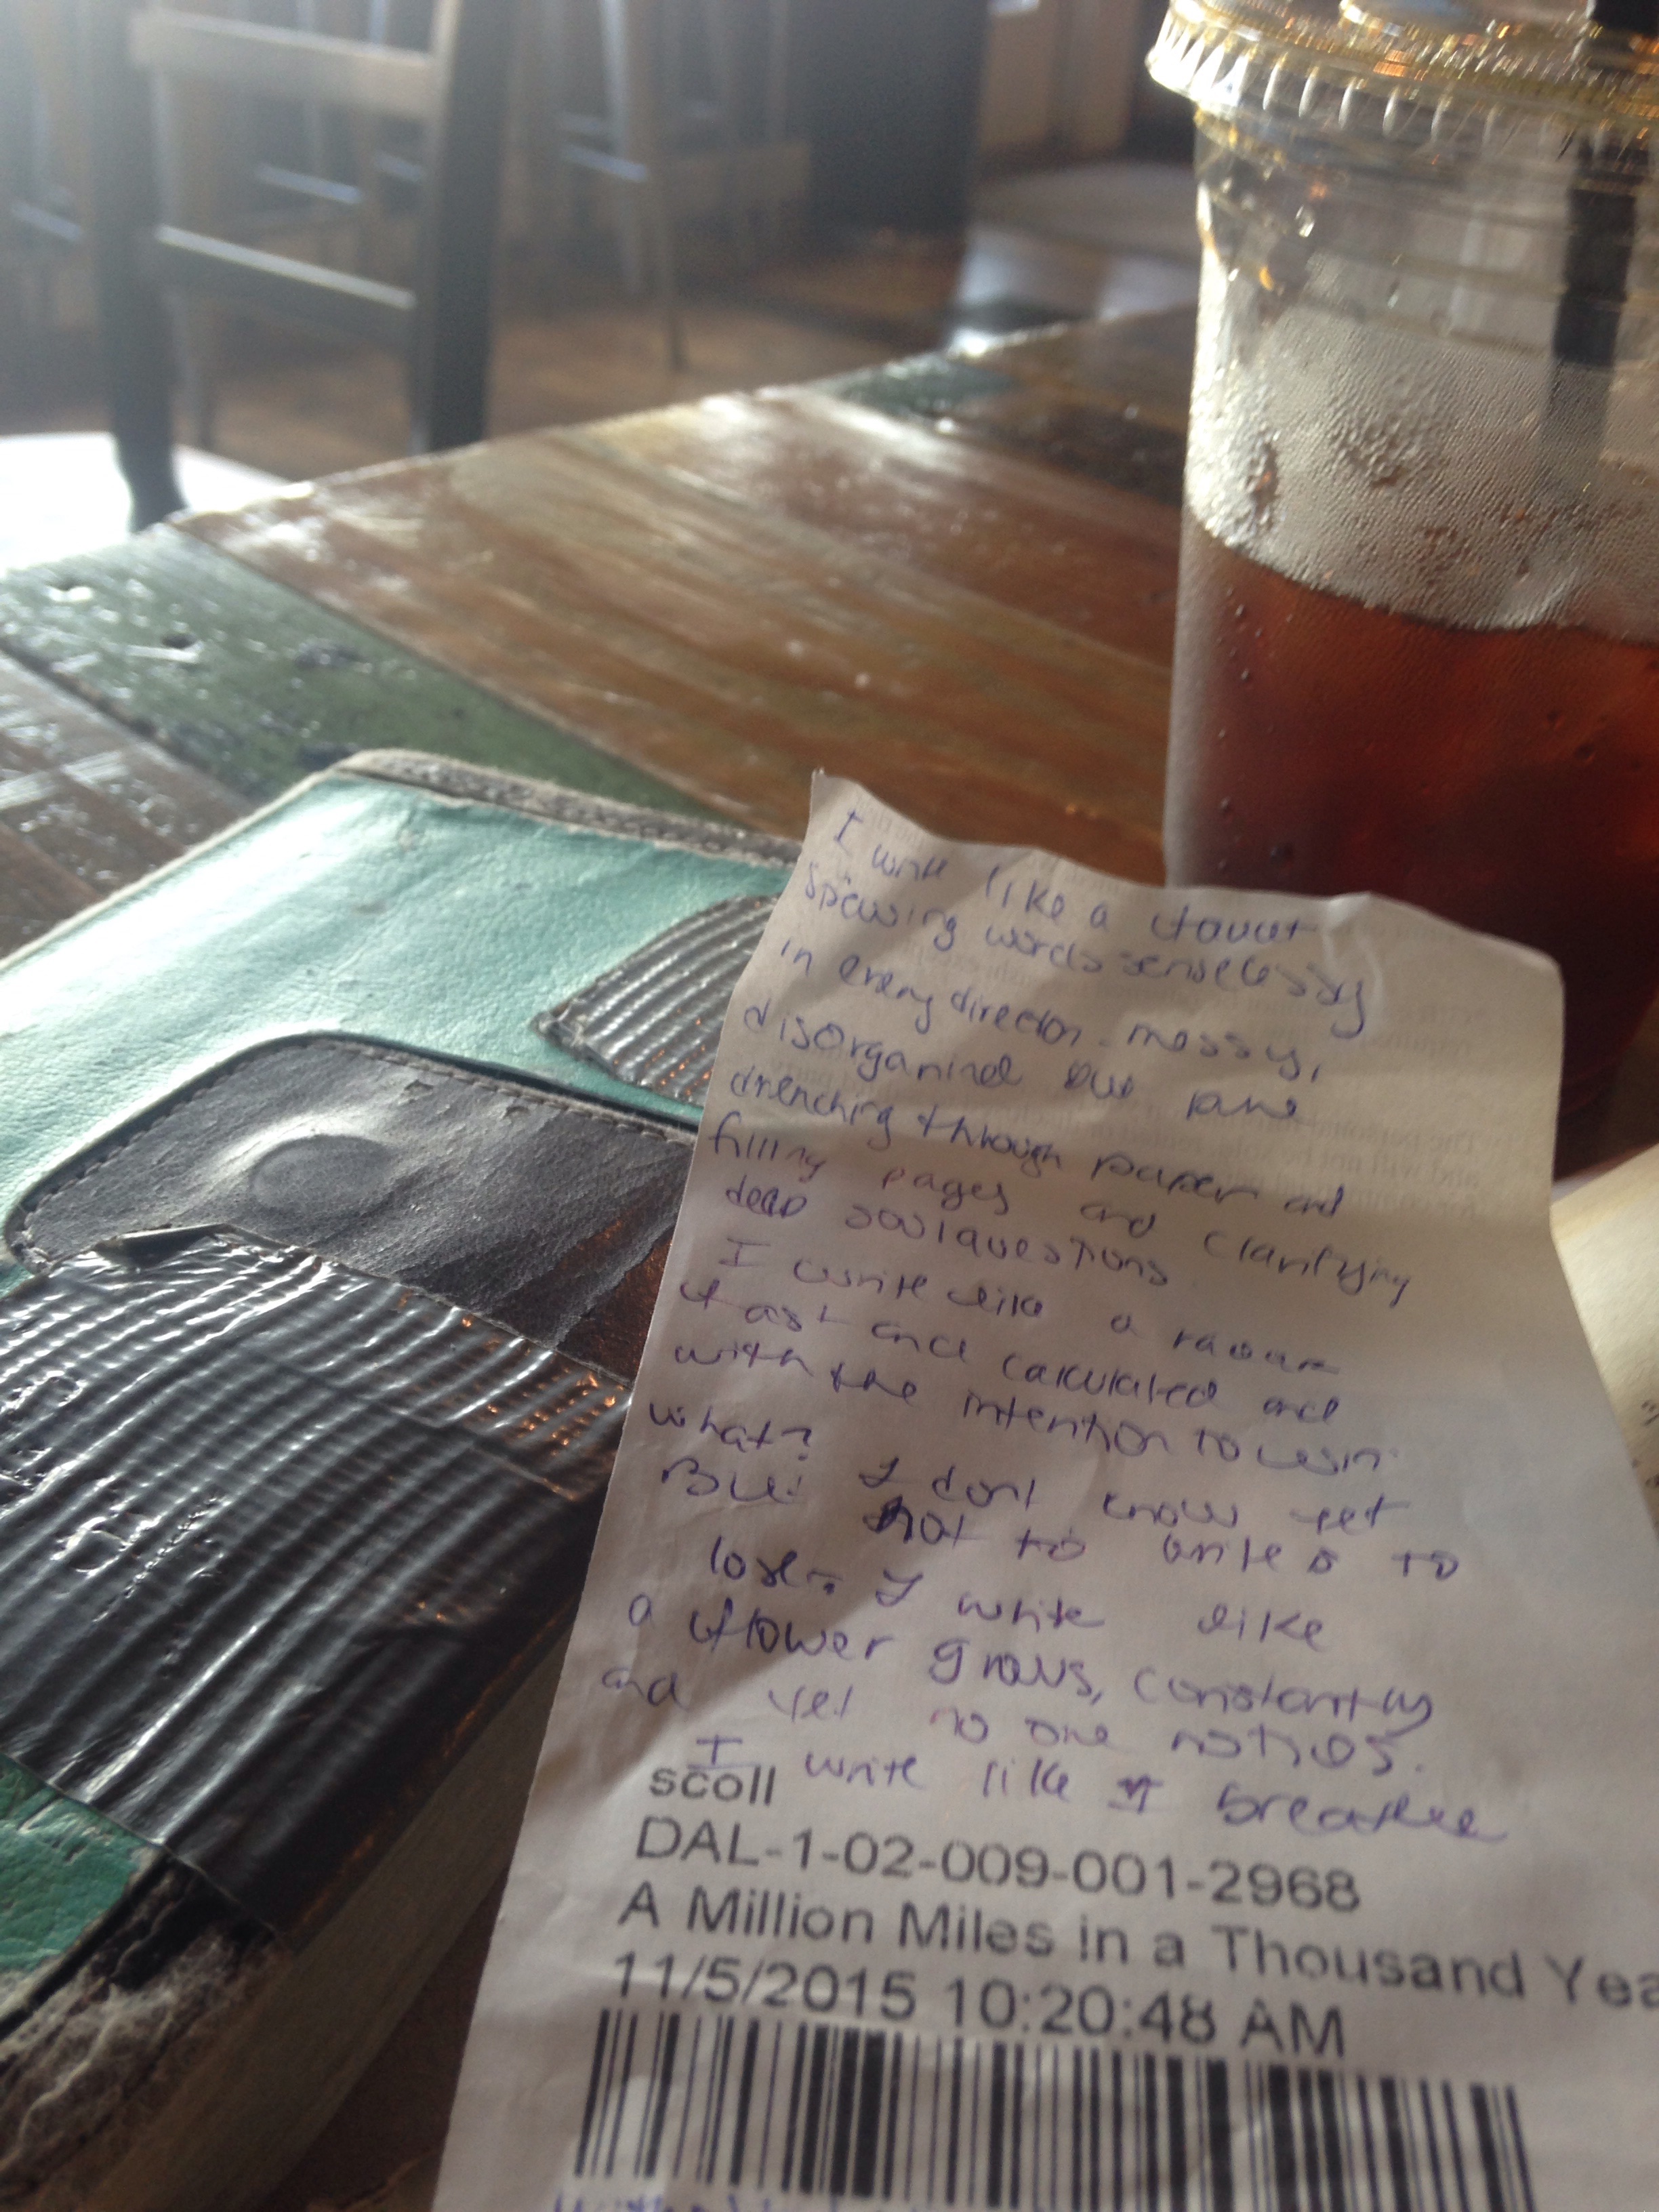 I write like a faucet
spewing words senselessly
in every direction. messy,
disorganized but pure
drenching through paper and
filling pages and clarifying
deep soul questions.
I write like a
fast and calculated and
with the intention to win.
what? I dont know yet
But not to write is to
lose. I write like
a flower grows, constantly
and yet no one notices.
I write like I breathe
scoll
DAL-1-02-009-001-2968
A Million Miles in a Thousand Yea
11/5/2015 10:20:48 AM